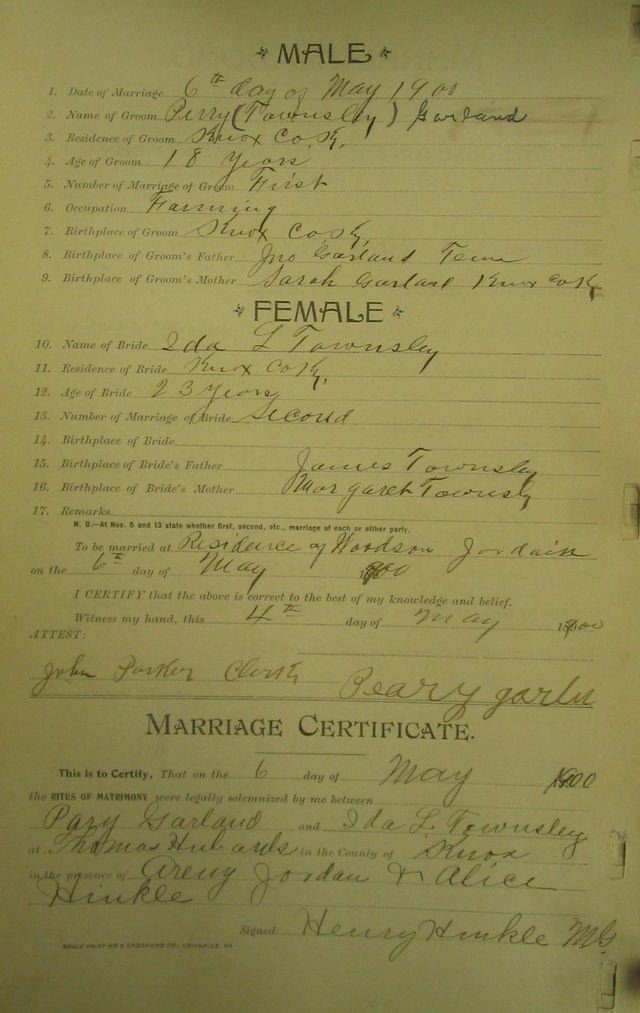 MALE
1. Date of Marriage 6th day of May 1900
2. Name of Groom Perry (Townsley) Garland
3. Residence of Groom Knox Co Ky.
4. Age of Groom 18 years
5. Number of Marriage of Groom First
6. Occupation Farming
7. Birthplace of Groom Knox Co Ky,
8. Birthplace of Groom's Father Jno Garland Tenn
9. Birthplace of Groom's Mother Sarah Garland Knox Co Ky
FEMALE
10. Name of Bride Ida L Townsley
11. Residence of Bride Knox Co Ky,
12. Age of Bride 23 years
13. Number of Marriage of Bride Second
14. Birthplace of Bride
15. Birthplace of Bride's Father James Townsley
16. Birthplace of Bride's Mother Margaret Townsly
17. Remarks
N. B.—At Nos. 5 and 13 state whether first, second, etc., marriage of each or either party.
To be married at Residence of Woodson Jordain
on the 6th day of May 1900
I CERTIFY that the above is correct to the best of my knowledge and belief.
Witness my hand, this 4th day of May 1900
ATTEST:
John Parker Clerk Peary
MARRIAGE CERTIFICATE.
This is to Certify, That on the 6 day of May 1900
the RITES OF MATRIMONY were legally solemnized by me between
Pary Garland and Ida L. Townsley
at Thomas Hubards in the County of Knox
in the presence of Jordan & Alice
Hinkle
Signed: Henry Hinkle MG